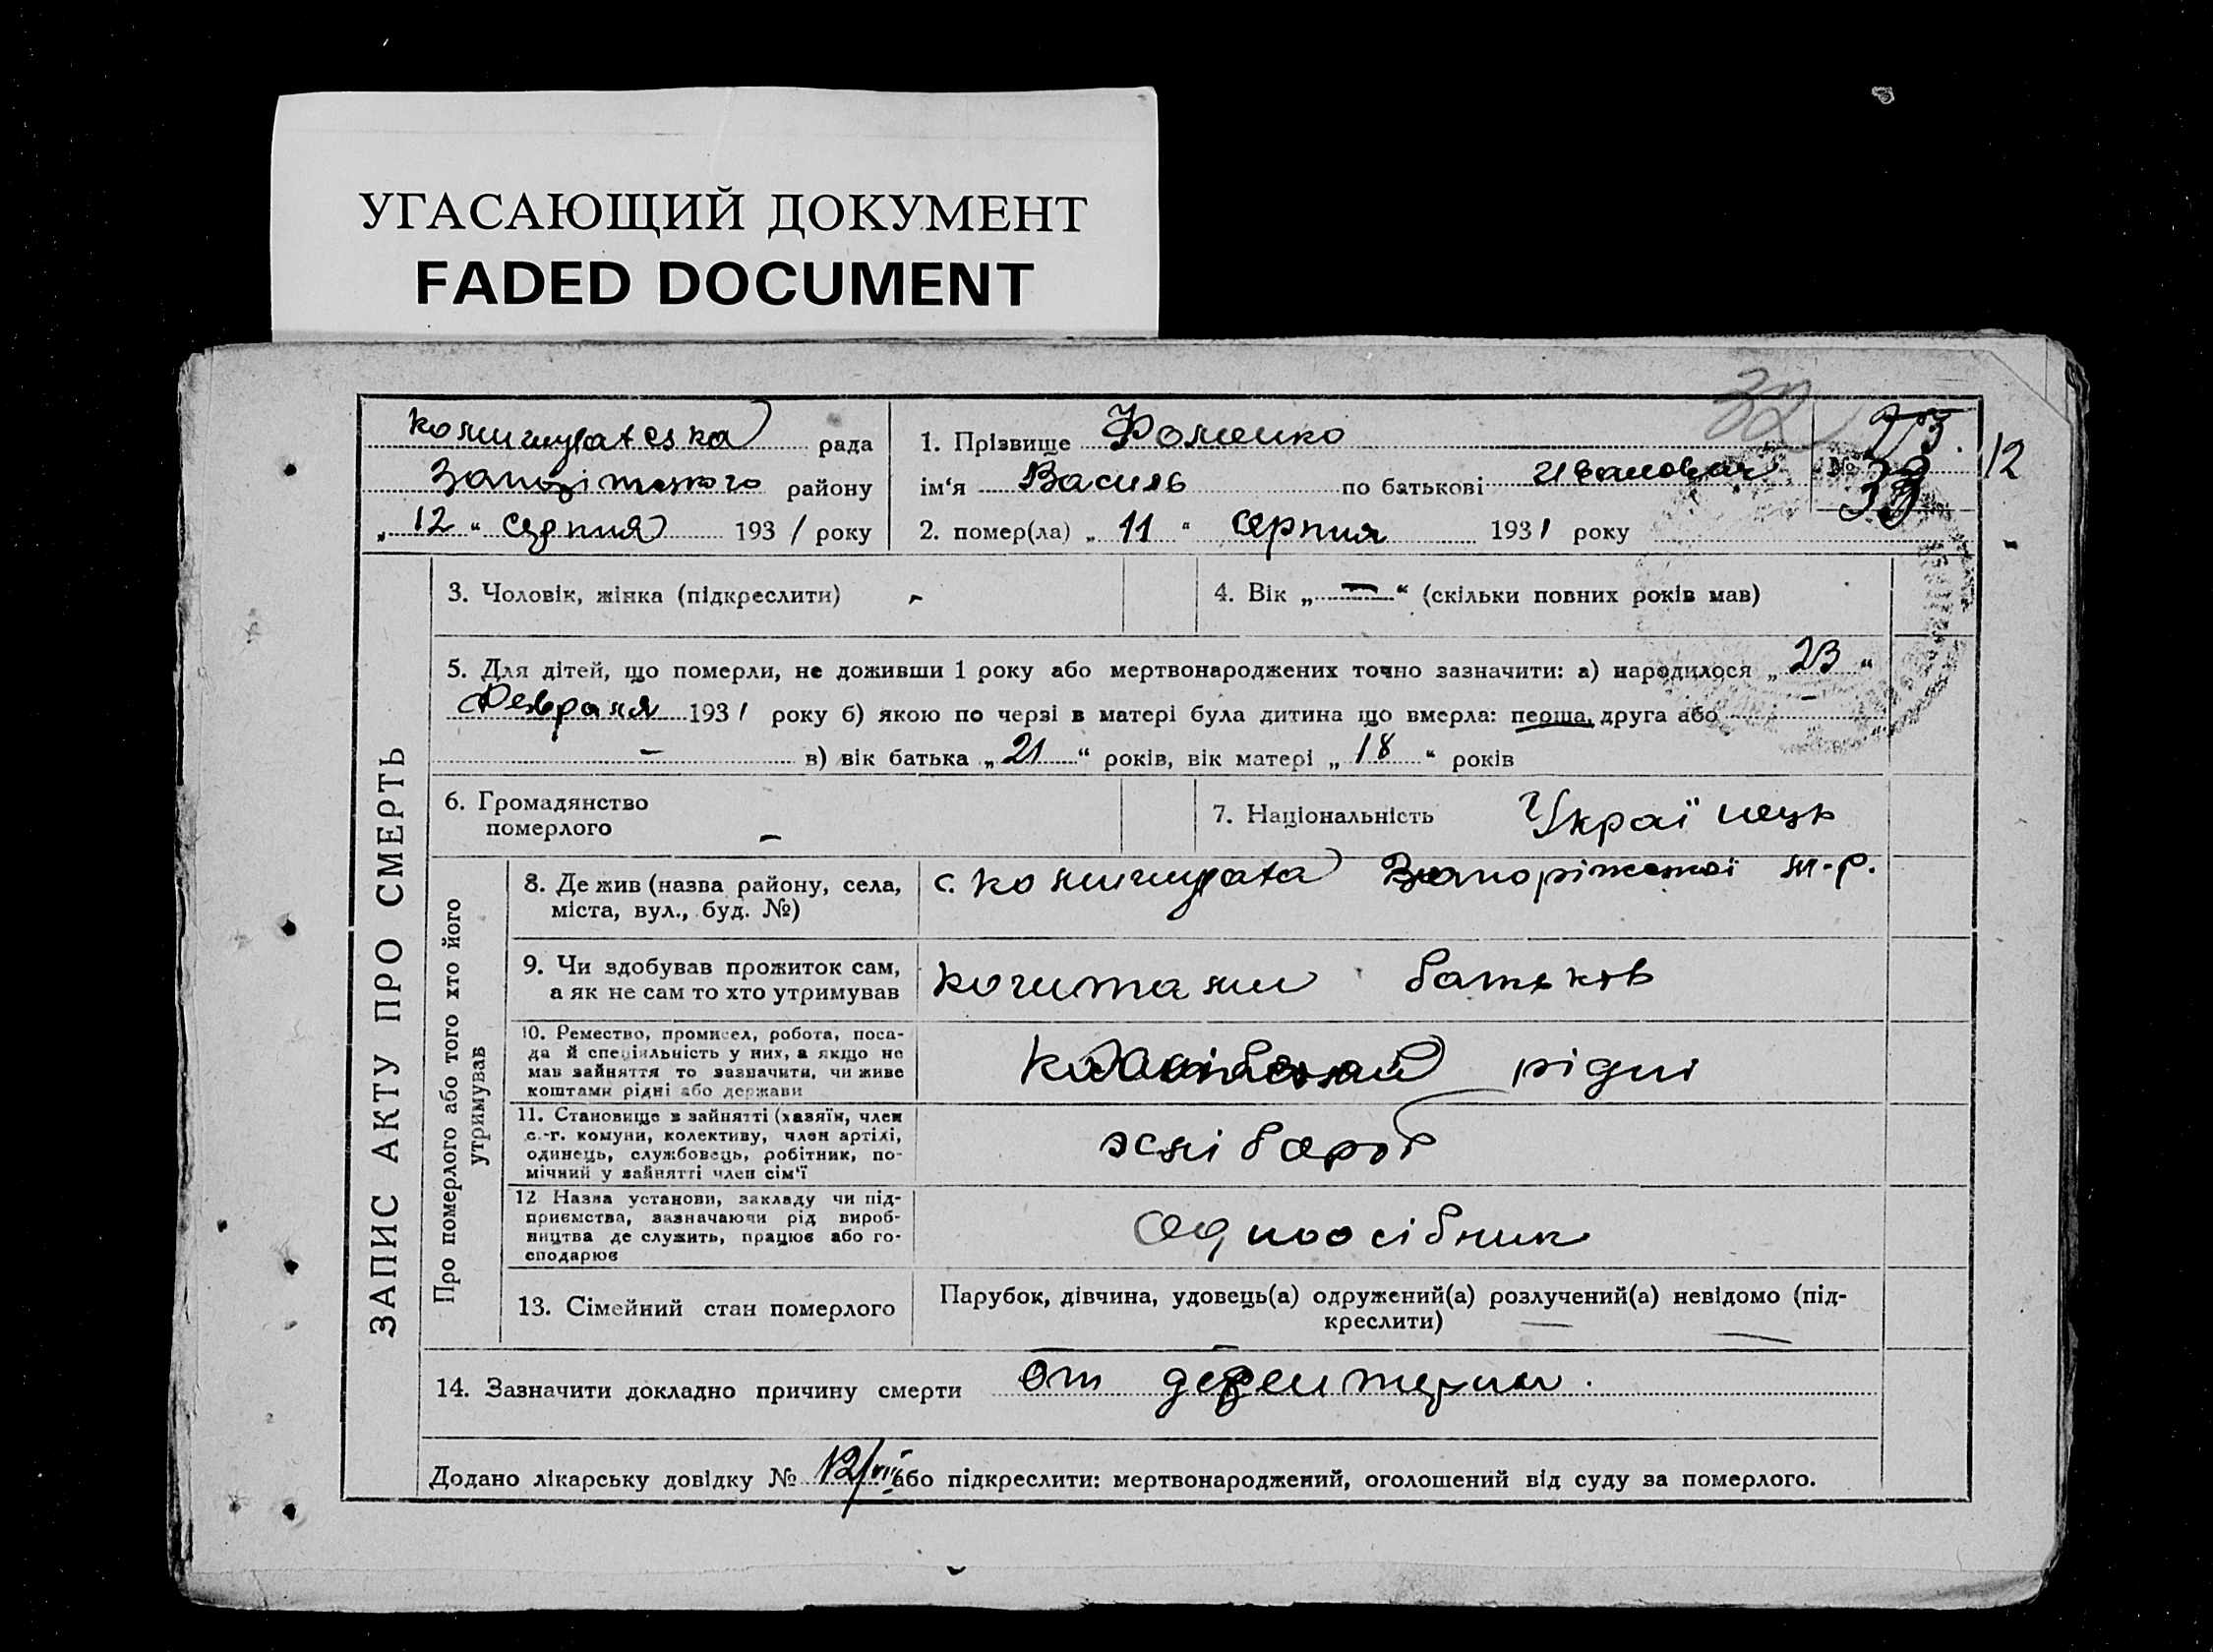 УГАСАЮЩИЙ ДОКУМЕНТ
FADED DOCUMENT
32
рада
району
„ 12 “ серпня 193 1 року
1. Прізвище Фоменко
ім‘я Василь по батькові Иванович
2. помер(ла) „ 11 “ серпня 193 1 року
№ 33
12
ЗАПИС АКТУ ПРО СМЕРТЬ
3. Чоловік, жінка (підкреслити) -
4. Вік „ — “ (скільки повних років мав)
5. Для дітей, що померли, не доживши 1 року або мертвонароджених точно зазначити: а) народилося „ 23 “
Февраля 193 1 року б) якою по черзі в матері була дитина що вмерла: перша, друга або -
— в) вік батька „ 21 “ років, вік матері „ 18 “ років
6. Громадянство
померлого -
7. Національність Українець
Про померлого або того хто його
утримував
8. Де жив (назва району, села,
міста, вул., буд. №)
с. Запоріжської м-р.
9. Чи здобував прожиток сам,
а як не сам то хто утримував
батьків
10. Ремество, промисел, робота, поса-
да й спеціяльність у них, а якщо не
мав зайняття то зазначити, чи живе
коштами рідні або держави
рідні
11. Становище в зайнятті (хазяїн, член
с.-г. комуни, колективу, член артілі,
одинець, службовець, робітник, по-
мічний у зайнятті член сім‘ї
хлібороб
12 Назва установи, закладу чи під-
приємства, зазначаючи рід вироб-
ництва де служить, працює або го-
сподарює
Одноосібник
13. Сімейний стан померлого
Парубок, дівчина, удовець(а) одружений(а) розлучений(а) невідомо (під-
креслити)
14. Зазначити докладно причину смерти От
Додано лікарську довідку № 12/VIII або підкреслити: мертвонароджений, оголошений від суду за померлого.